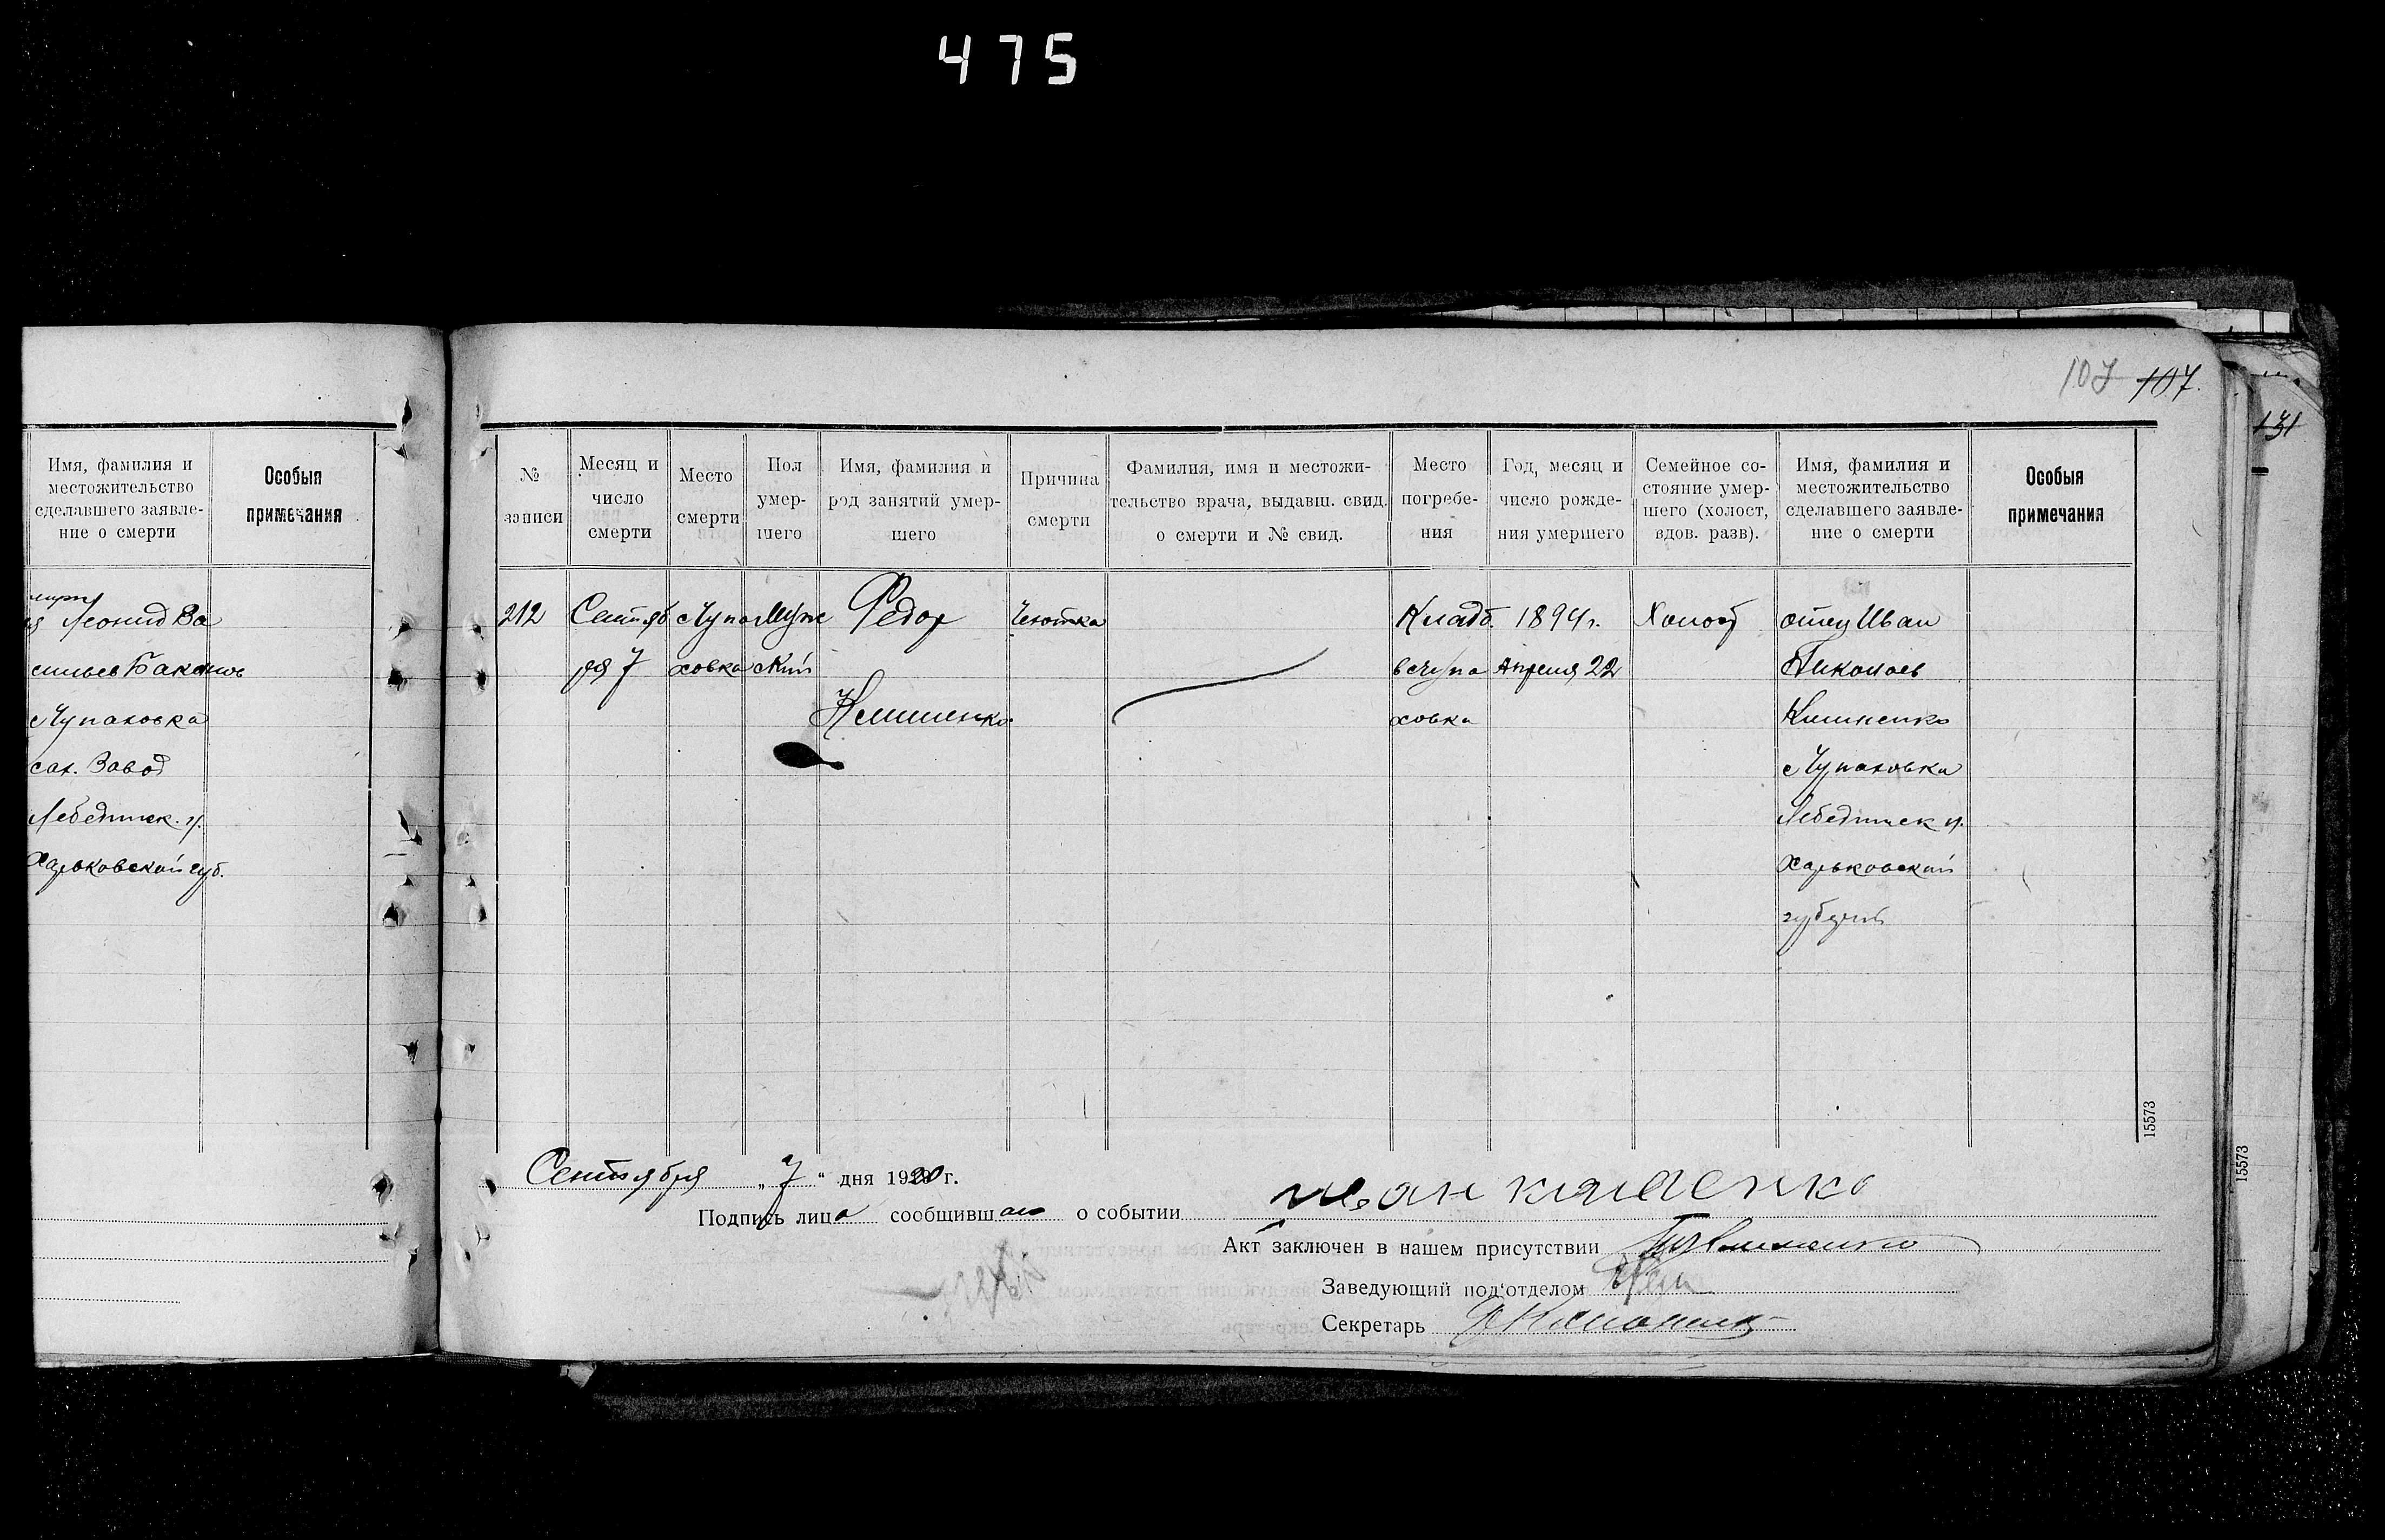 475
107 107.
131
Имя, фамилия и
местожительство
сделавшего заявле-
ние о смерти
Особыя
примечания
Леонид Ва
сильев Баканов
Чупаховка
сах. Завод
Лебединск. у.
Харьковской губ.
№
записи
Месяц и
число
смерти
Место
смерти
Пол
умер-
шего
Имя, фамилия и
род занятий умер-
шего
Причина
смерти
Фамилия, имя и местожи-
тельство врача, выдавш. свид.
о смерти и № свид.
Место
погребе-
ния
Год, месяц и
число рожде-
ния умершего
Семейное со-
стояние умер-
шего (холост,
вдов. разв).
Имя, фамилия и
местожительство
сделавшего заявле-
ние о смерти
Особыя
примечания
212
Сентяб
ря 7
Чупа
ховка
Муж
ской
Федор
Клименко
Чехотка
Кладб.
в Чупа
ховка
1894 г.
Апреля 22
Холост
отец Иван
Николаев
Клименко
Чупаховка
Лебединск у.
Харьковской
губерни
15573
15573
Сентября „7“ дня 1920 г.
Подпись лица сообщившаго о событии
Акт заключен в нашем присутствии
Заведующий под‘отделом
Секретарь